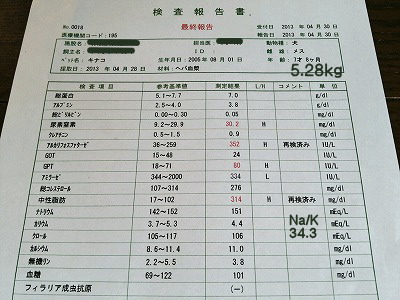 検査報告書
No.0018 最終報告 受付日 2013 年 04 月 30 日
医療機関コード:195 報告日 2013 年 04 月 30 日
施設名: 担当医: 動物種: 犬
飼主名: ID: 雌雄: メス
ペット名: キナコ 生年月日: 2005 年 08 月 01 日 年齢: 7才 8ヶ月
採取日: 2013 年 04 月 28 日 材料: ヘパ血漿
5.28kg
検査項目 参考基準値 測定結果 L/H コメント 単位
総蛋白 5.1~7.7 7.0 g/dl
アルブミン 2.5~4.0 3.8 g/dl
総ビリルビン 0.00~0.30 0.05 mg/dl
尿素窒素 9.2~29.9 30.2 H mg/dl
クレアチニン 0.5~1.5 0.9 mg/dl
アルカリフォスファターゼ 36~259 352 H 再検済み IU/L
GOT 15~48 24 IU/L
GPT 18~71 80 H IU/L
アミラーゼ 344~2000 334 L IU/L
総コレステロール 107~314 276 mg/dl
中性脂肪 17~102 314 H 再検済み mg/dl
ナトリウム 142~152 151 mEq/L
カリウム 3.7~5.3 4.4 mEq/L
クロール 105~117 106 mEq/L
Na/K
34.3
カルシウム 8.6~11.4 11.0 mg/dl
無機リン 2.2~5.5 3.8 mg/dl
血糖 69~122 101 mg/dl
フィラリア成虫抗原 (-)